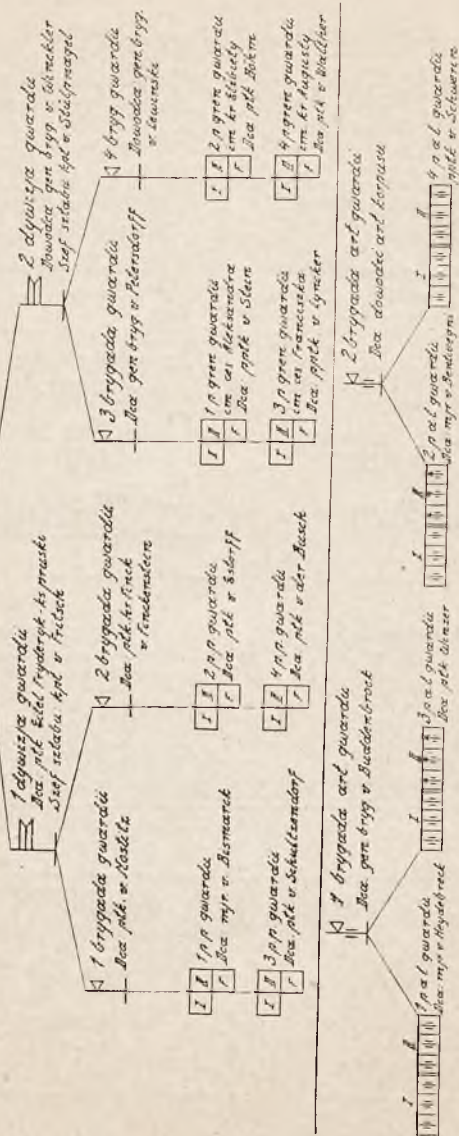 1 dywizja gwardii
Dca płk Eitel Fryderyk ks pruski
Szef sztabu kpt v Fritsch
2 dywizja gwardii
Dowodca gen bryg v Winckler
Szef sztabu kpt v Stülpnagel
1 brygada gwardii
Dca płk. v. Nostitz
2 brygada gwardii
Dca płk hr Finck
v Finckenstein
3 brygada gwardii
Dca gen bryg v Petersdorff
4 bryg gwardii
Dowodca gen bryg.
v. Lewinski
I II
F
1 p p gwardii
Dca mjr v. Bismarck
I II
F
2 p.p. gwardii
Dca płk v Estorff
I II
F
1 p gren gwardii
im ces Aleksandra
Dca ppłk v Stein
I II
F
2 p gren gwardii
im kr Elżbiety
Dca płk Böhm
I II
F
3 p.p. gwardii
Dca płk v Schultzendorf
I II
F
4 p.p. gwardii
Dca płk v der Busch
I II
F
3 p gren gwardii
im ces Franciszka
Dca ppłk v Lyncker
I II
F
4 p gren gwardii
im kr Augusty
Dca płk v Walther
1 brygada art gwardii
Dca gen bryg v Buddenbrock
2 brygada art gwardii
Dca dowodci art korpusu
I II
1 p a l gwardii
Dca mjr v Heydebreck
I II
3 p a l gwardii
Dca płk Wenzer
I II
2 p a l gwardii
Dca mjr v Bendivegni
I II
4 p a l gwardii
ppłk v Schwerin